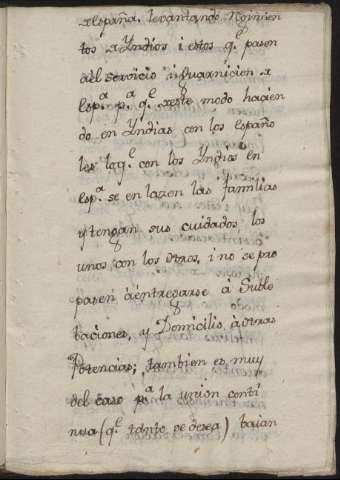 xEspaña, levantando Regimien
tos xYndios i estos q.e pasen
del servicio i guarnicion x
Esp.a p.a q.e xeste modo hacien
do en Yndias con los españo
les lo q.e con los Yndios en
esp.a se enlazen las familias
y tengan sus cuidados los
unos con los otros, i no se pro
pasen à éntregarse á Suble
baciones, y Domicilio à otras
Potencias; tambien es muy
del caso p.a la union conti
nua (q.e tanto se desea) baian